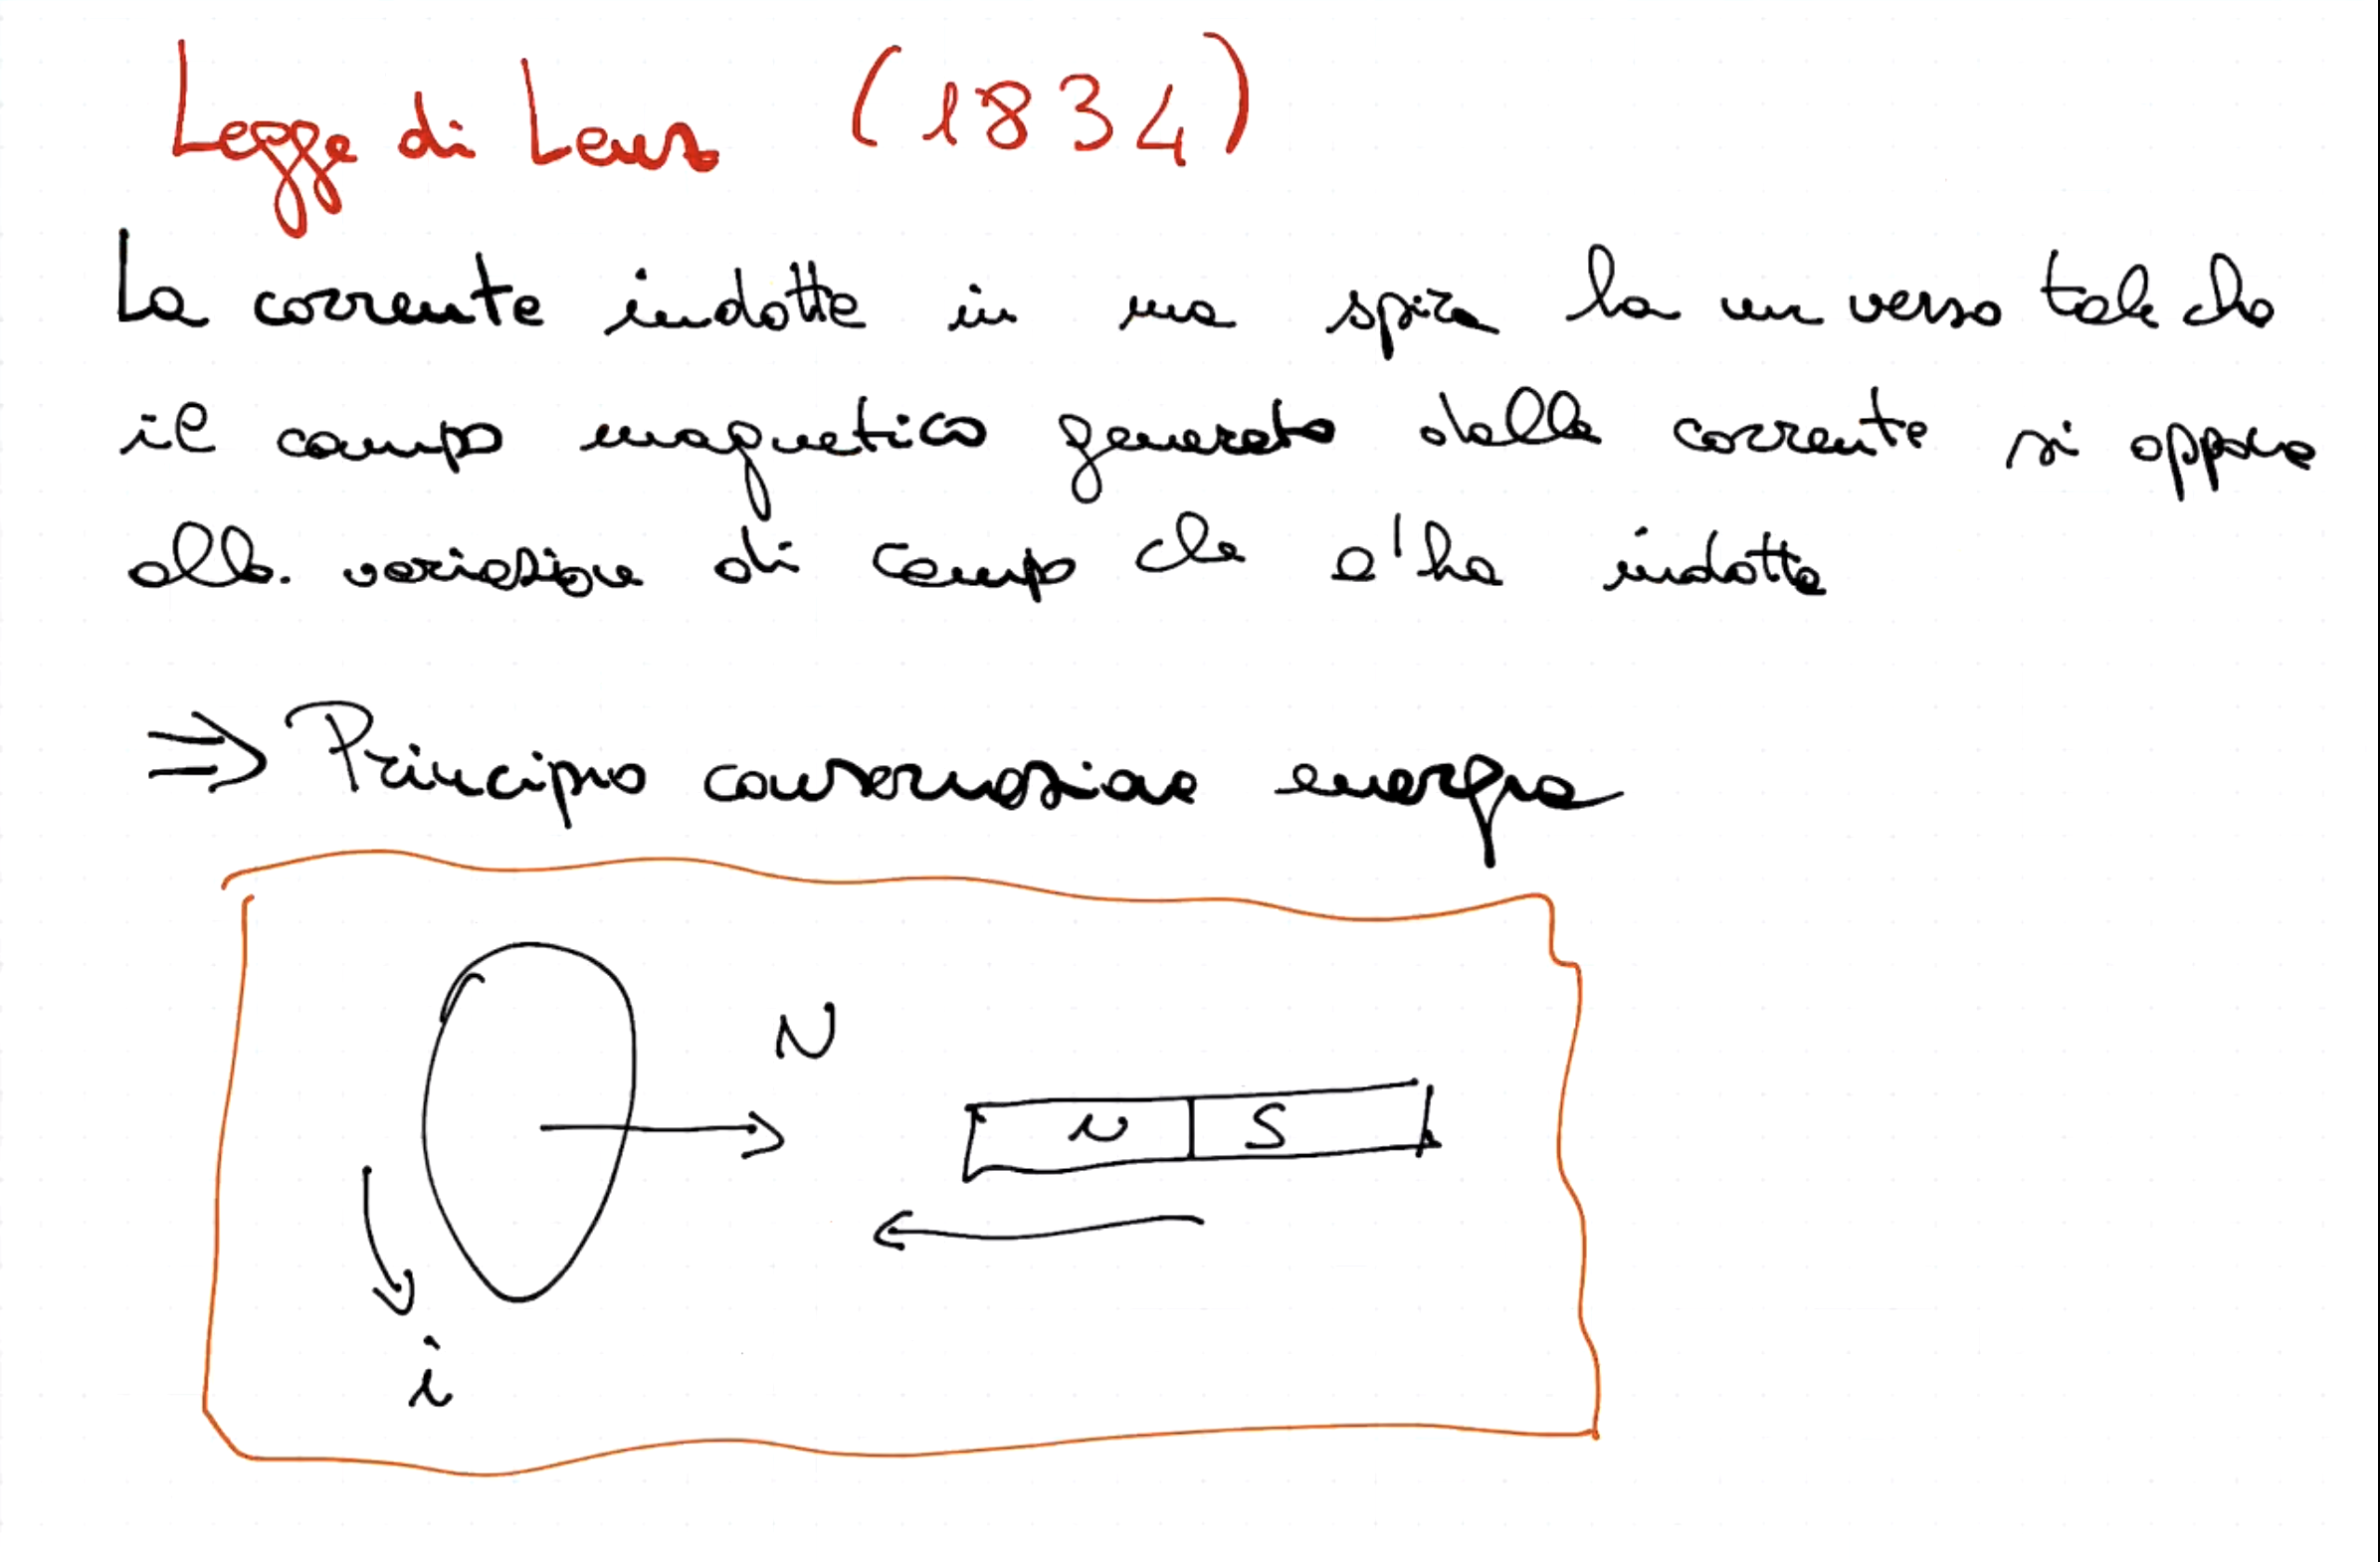 Legge di Lenz (1834)
La corrente indotta in una spira ha un verso tale che
il campo magnetico generato dalla corrente si oppone
alla variazione di campo che l'ha indotta
⇒ Principio conservazione energia
N
N S
i